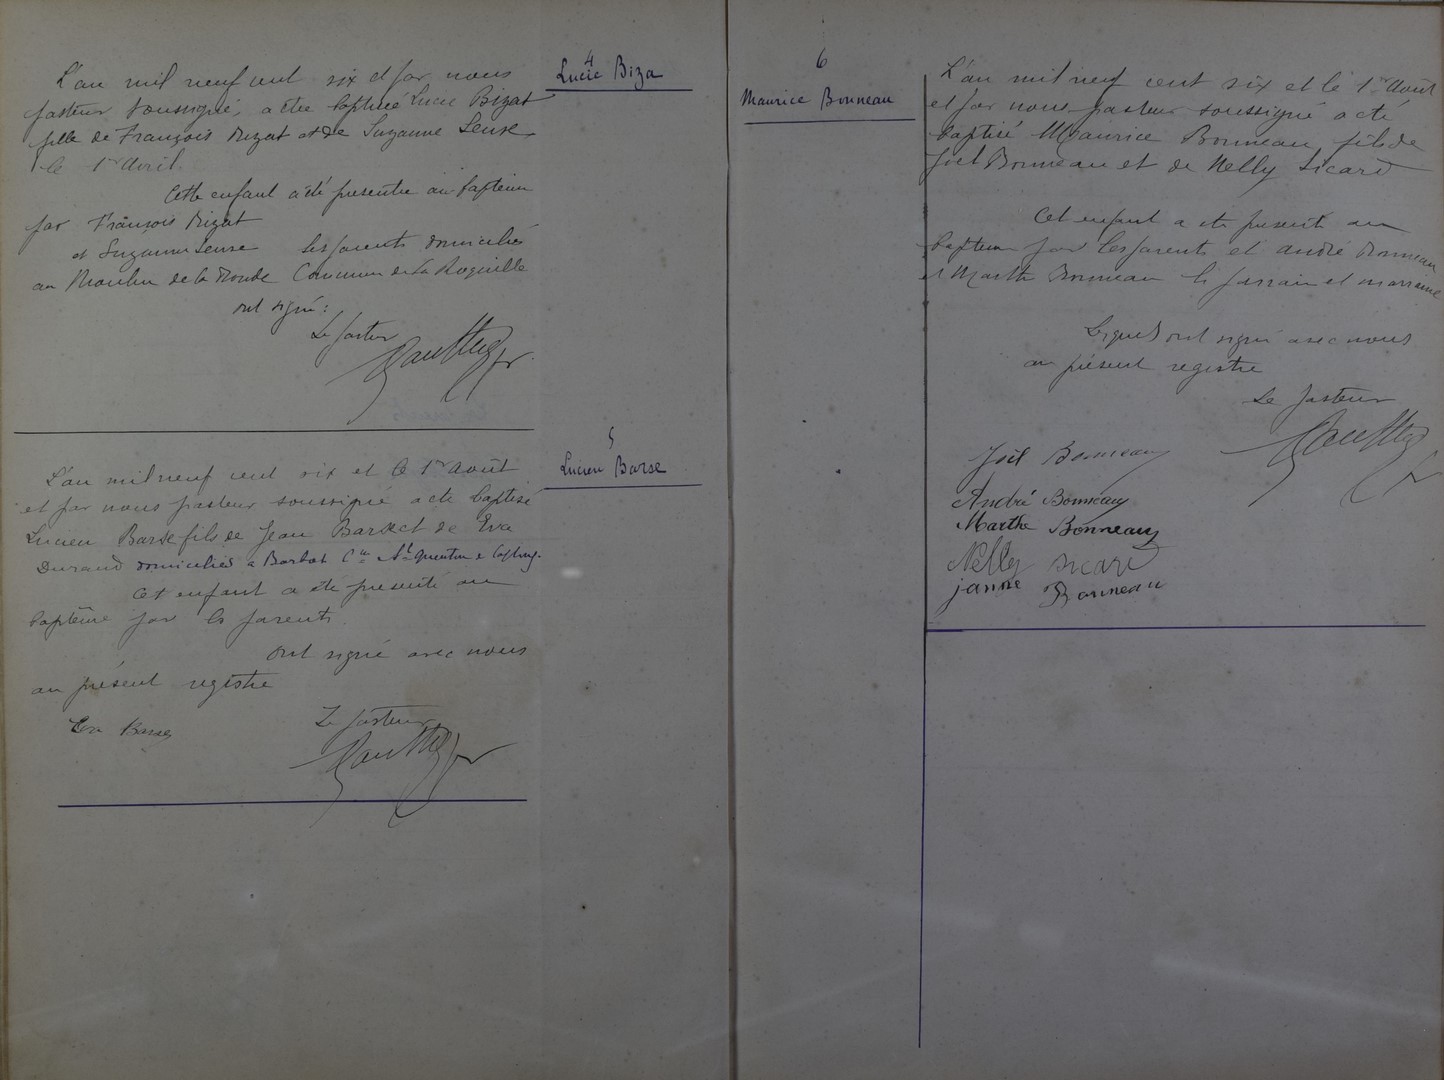 4
Lucie Biza
L'an mil neuf cent six et par nous
pasteur soussigné, a été baptisée Lucie Bizat
fille de François Bizat et de Suzanne Seuse
le 1er Avril.
Cette enfant a été présentée au baptème
par François Bizat
et Suzanne Seuse les parents domiciliés
au Moulin de la Commune de La Roquille
ont signé:
Le pasteur
5
Lucien Barse
L'an mil neuf cent six et le 1er Août
et par nous pasteur soussigné a été baptisé
Lucien Barse fils de Jean Barse et de Eva
Durand domiciliés à Barbat Cne St Quentin de
Cet enfant a été présenté au
baptême par les parents.
ont signé avec nous
au présent registre
Eva Barse
Le pasteur
6
Maurice Bonneau
L'an mil neuf cent six et le 1er Août
et par nous pasteur soussigné a été
baptisé Maurice Bonneau, fils de
Joël Bonneau et de Nelly Sicard
Cet enfant a été présenté au
baptème par les parents et André Bonneau
et Marthe Bonneau le parrain et marraine
Lesquels ont signé avec nous
au présent registre
Le pasteur
Joël Bonneau
André Bonneau
Marthe Bonneau
Nelly Sicard
janne Bonneau